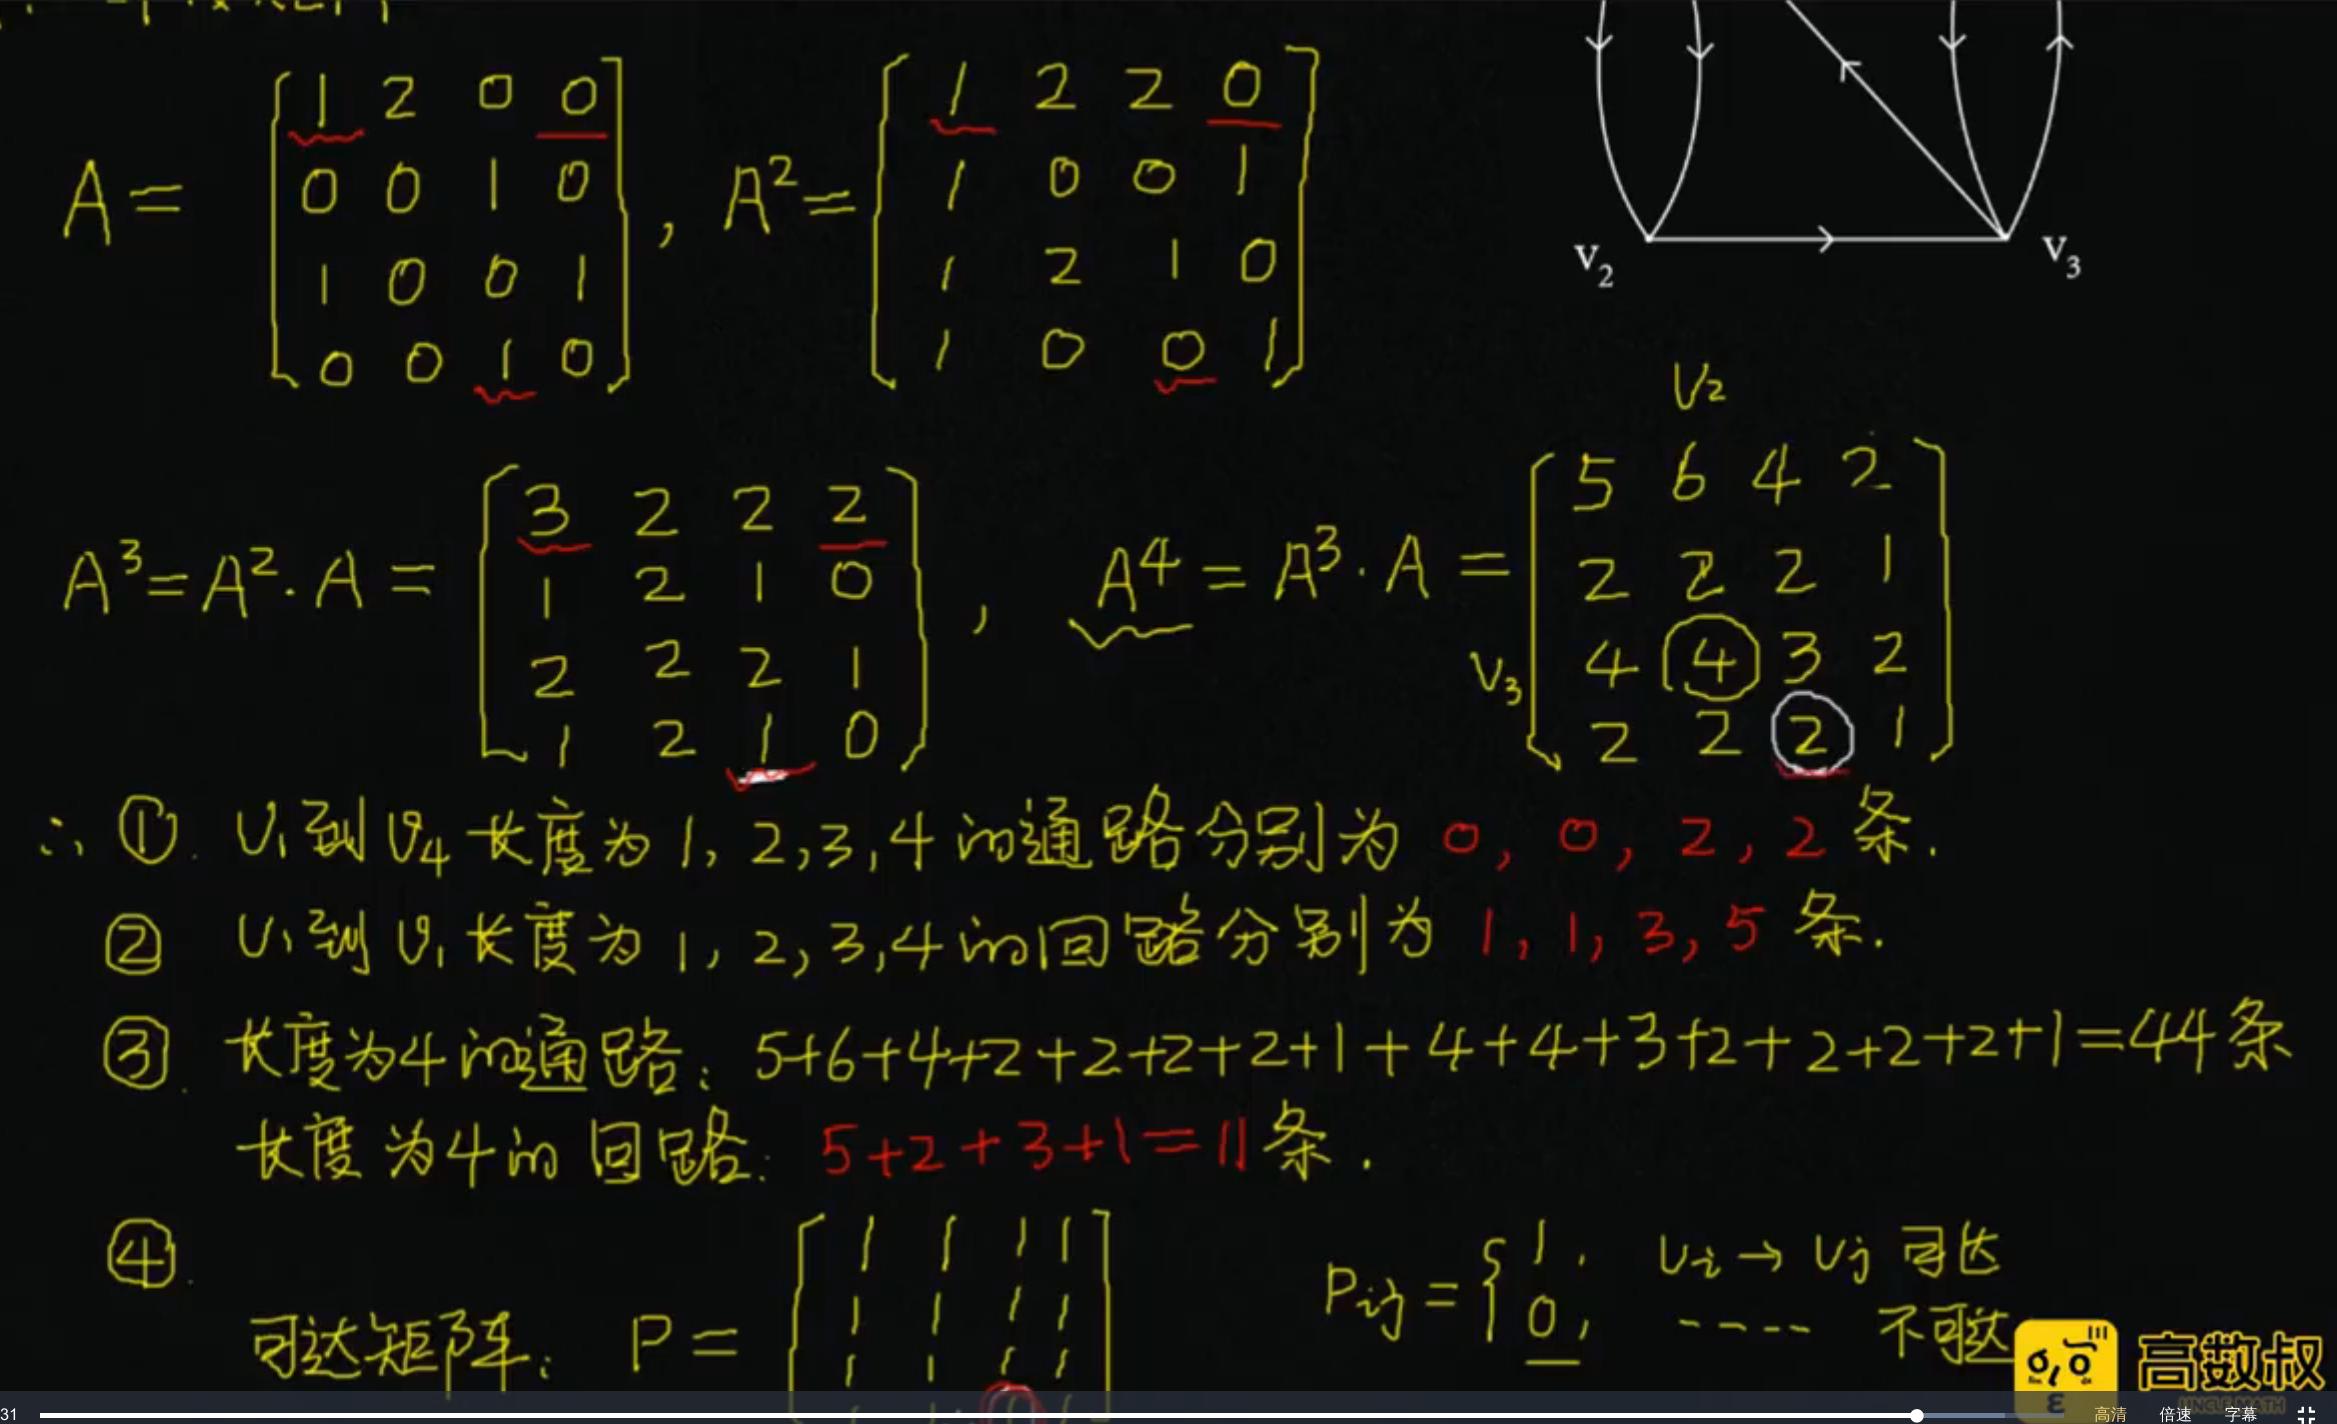 A = [1 2 0 0
0 0 1 0
1 0 0 1
0 0 1 0]
, A² = [1 2 2 0
1 0 0 1
1 2 1 0
1 0 0 1]
v₂
v₃
A³ = A² · A = [3 2 2 2
1 2 1 0
2 2 2 1
1 2 1 0]
, A⁴ = A³ · A =
V₂
V₃
[5 6 4 2
2 2 2 1
4 4 3 2
2 2 2 1]
∴ ①. V₁到V₄长度为1, 2, 3, 4的通路分别为 0, 0, 2, 2 条.
② V₁到V₁长度为1, 2, 3, 4的回路分别为 1, 1, 3, 5 条.
③. 长度为4的通路: 5+6+4+2+2+2+2+1+4+4+3+2+2+2+2+1=44条
长度为4的回路: 5+2+3+1=11条.
④.
可达矩阵: P = [1 1 1 1
1 1 1 1
1 1 1 1
Pij = { 1, Vi → Vj 可达
0, ---- 不可达
高数叔
31
高清 倍速 字幕